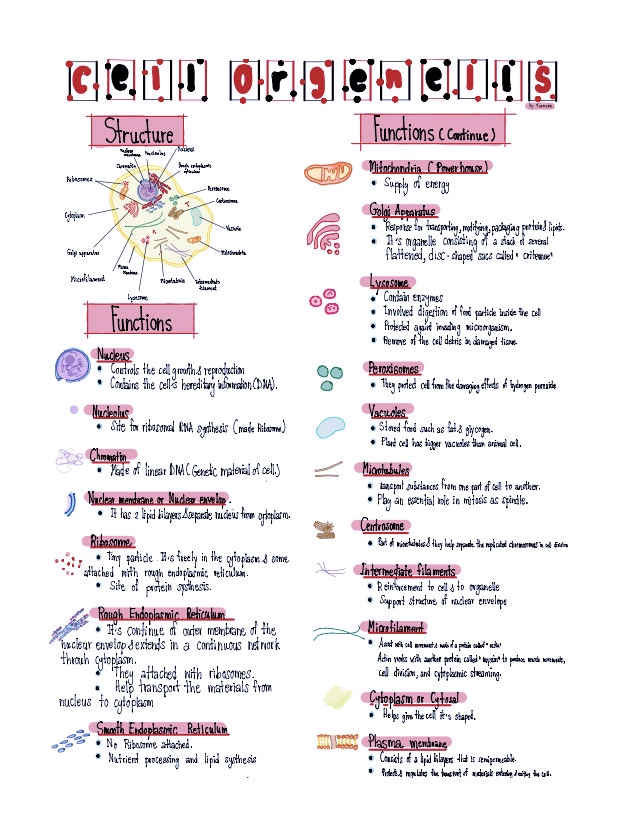 Cell Orgenells
By Tamana
Structure
Nuclear membrane
Nucleolus
Nucleus
Chromatin
Rough endoplasmic reticulum
Ribosomes
Peroxisome
Centrosome
Cytoplasm
Vacuole
Golgi apparatus
Mitochondria
Plasma Membrane
Microfilament
Microtubule
Intermediate filament
Lysosome
Functions
Nucleus
• Controls the cell growth & reproduction
• Contains the cell's hereditary information (DNA).
Nucleolus
• Site for ribosomal RNA synthesis (made Ribosome)
Chromatin
• Made of linear DNA (Genetic material of cell)
Nuclear membrane or Nuclear envelop.
• It has 2 lipid bilayers & separate nucleus from cytoplasm.
Ribosome
• Tiny particle It is freely in the cytoplasm & some
attached with rough endoplasmic reticulum.
• Site of protein systhesis.
Rough Endoplasmic Reticulum
• It's continue of outer membrane of the
nuclear envelop & extends in a continuous network
throuh cytoplasm.
• They attached with ribosomes.
• Help transport the materials from
nucleus to cytoplasm
Smooth Endoplasmic Reticulum
• No Ribosome attached.
• Nutrient processing and lipid systhesis
Functions (Continue)
Mitochondria (Powerhouse)
• Supply of energy
Golgi Apparatus
• Response for transporting, modifying, packaging protein & lipids.
• It's organelle consisting of a stack of several
flattened, disc-shaped sacs called "cristernae"
Lysosome
• Contain enzymes
• Involved digestion of food particle inside the cell
• Protected againt invading microorganism.
• Remove of the cell debris in damaged tissue
Peroxisomes
• They protect cell from the damaging effects of hydrogen peroxide.
Vacuoles
• Stored food such as fat & glycogen.
• Plant cell has bigger vacuoles than animal cell.
Microtubules
• Transport substances from one part of cell to another.
• Play an essential role in mitosis as spindle.
Centrosome
• Part of microtubules & they help separate the replicated chromosomes in cell division
Intermediate filaments
• Reinforcement to cell & to organelle
• Support structure of nuclear envelope
Microfilament
• Assist with cell movement & made of a protein called "actin"
Actin works with another protein called "myosin" to produce muscle movements,
cell division, and cytoplasmic streaming.
Cytoplasm or Cytosol
• Helps give the cell it's shaped.
Plasma membrane
• Consists of a lipid bilayers that is semipermeable.
• Protects & regulates the transport of materials entering & exiting the cell.